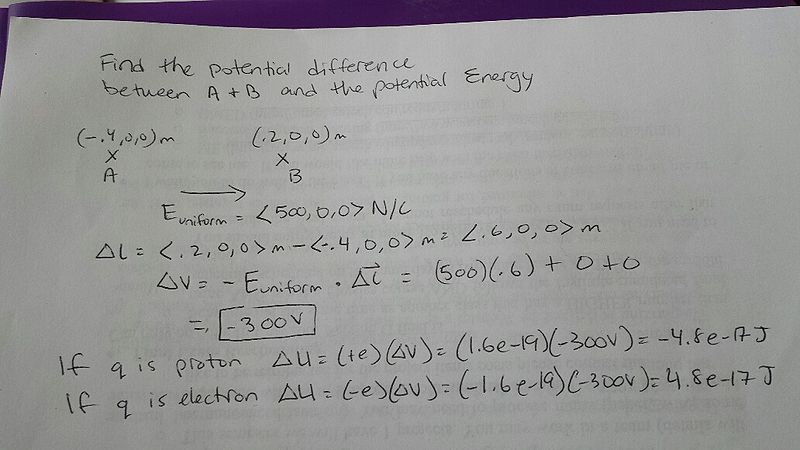 Find the potential difference
between A + B and the potential Energy
(-.4,0,0)m (.2,0,0)m
x x
A B
E uniform = <500,0,0> N/C
Δl = <.2,0,0>m - <-.4,0,0>m = <.6,0,0>m
ΔV = - E uniform · Δl = (500)(.6) + 0 + 0
= -300V
If q is proton ΔU = (+e)(ΔV) = (1.6e-19)(-300V) = -4.8e-17 J
If q is electron ΔU = (-e)(ΔV) = (-1.6e-19)(-300V) = 4.8e-17 J